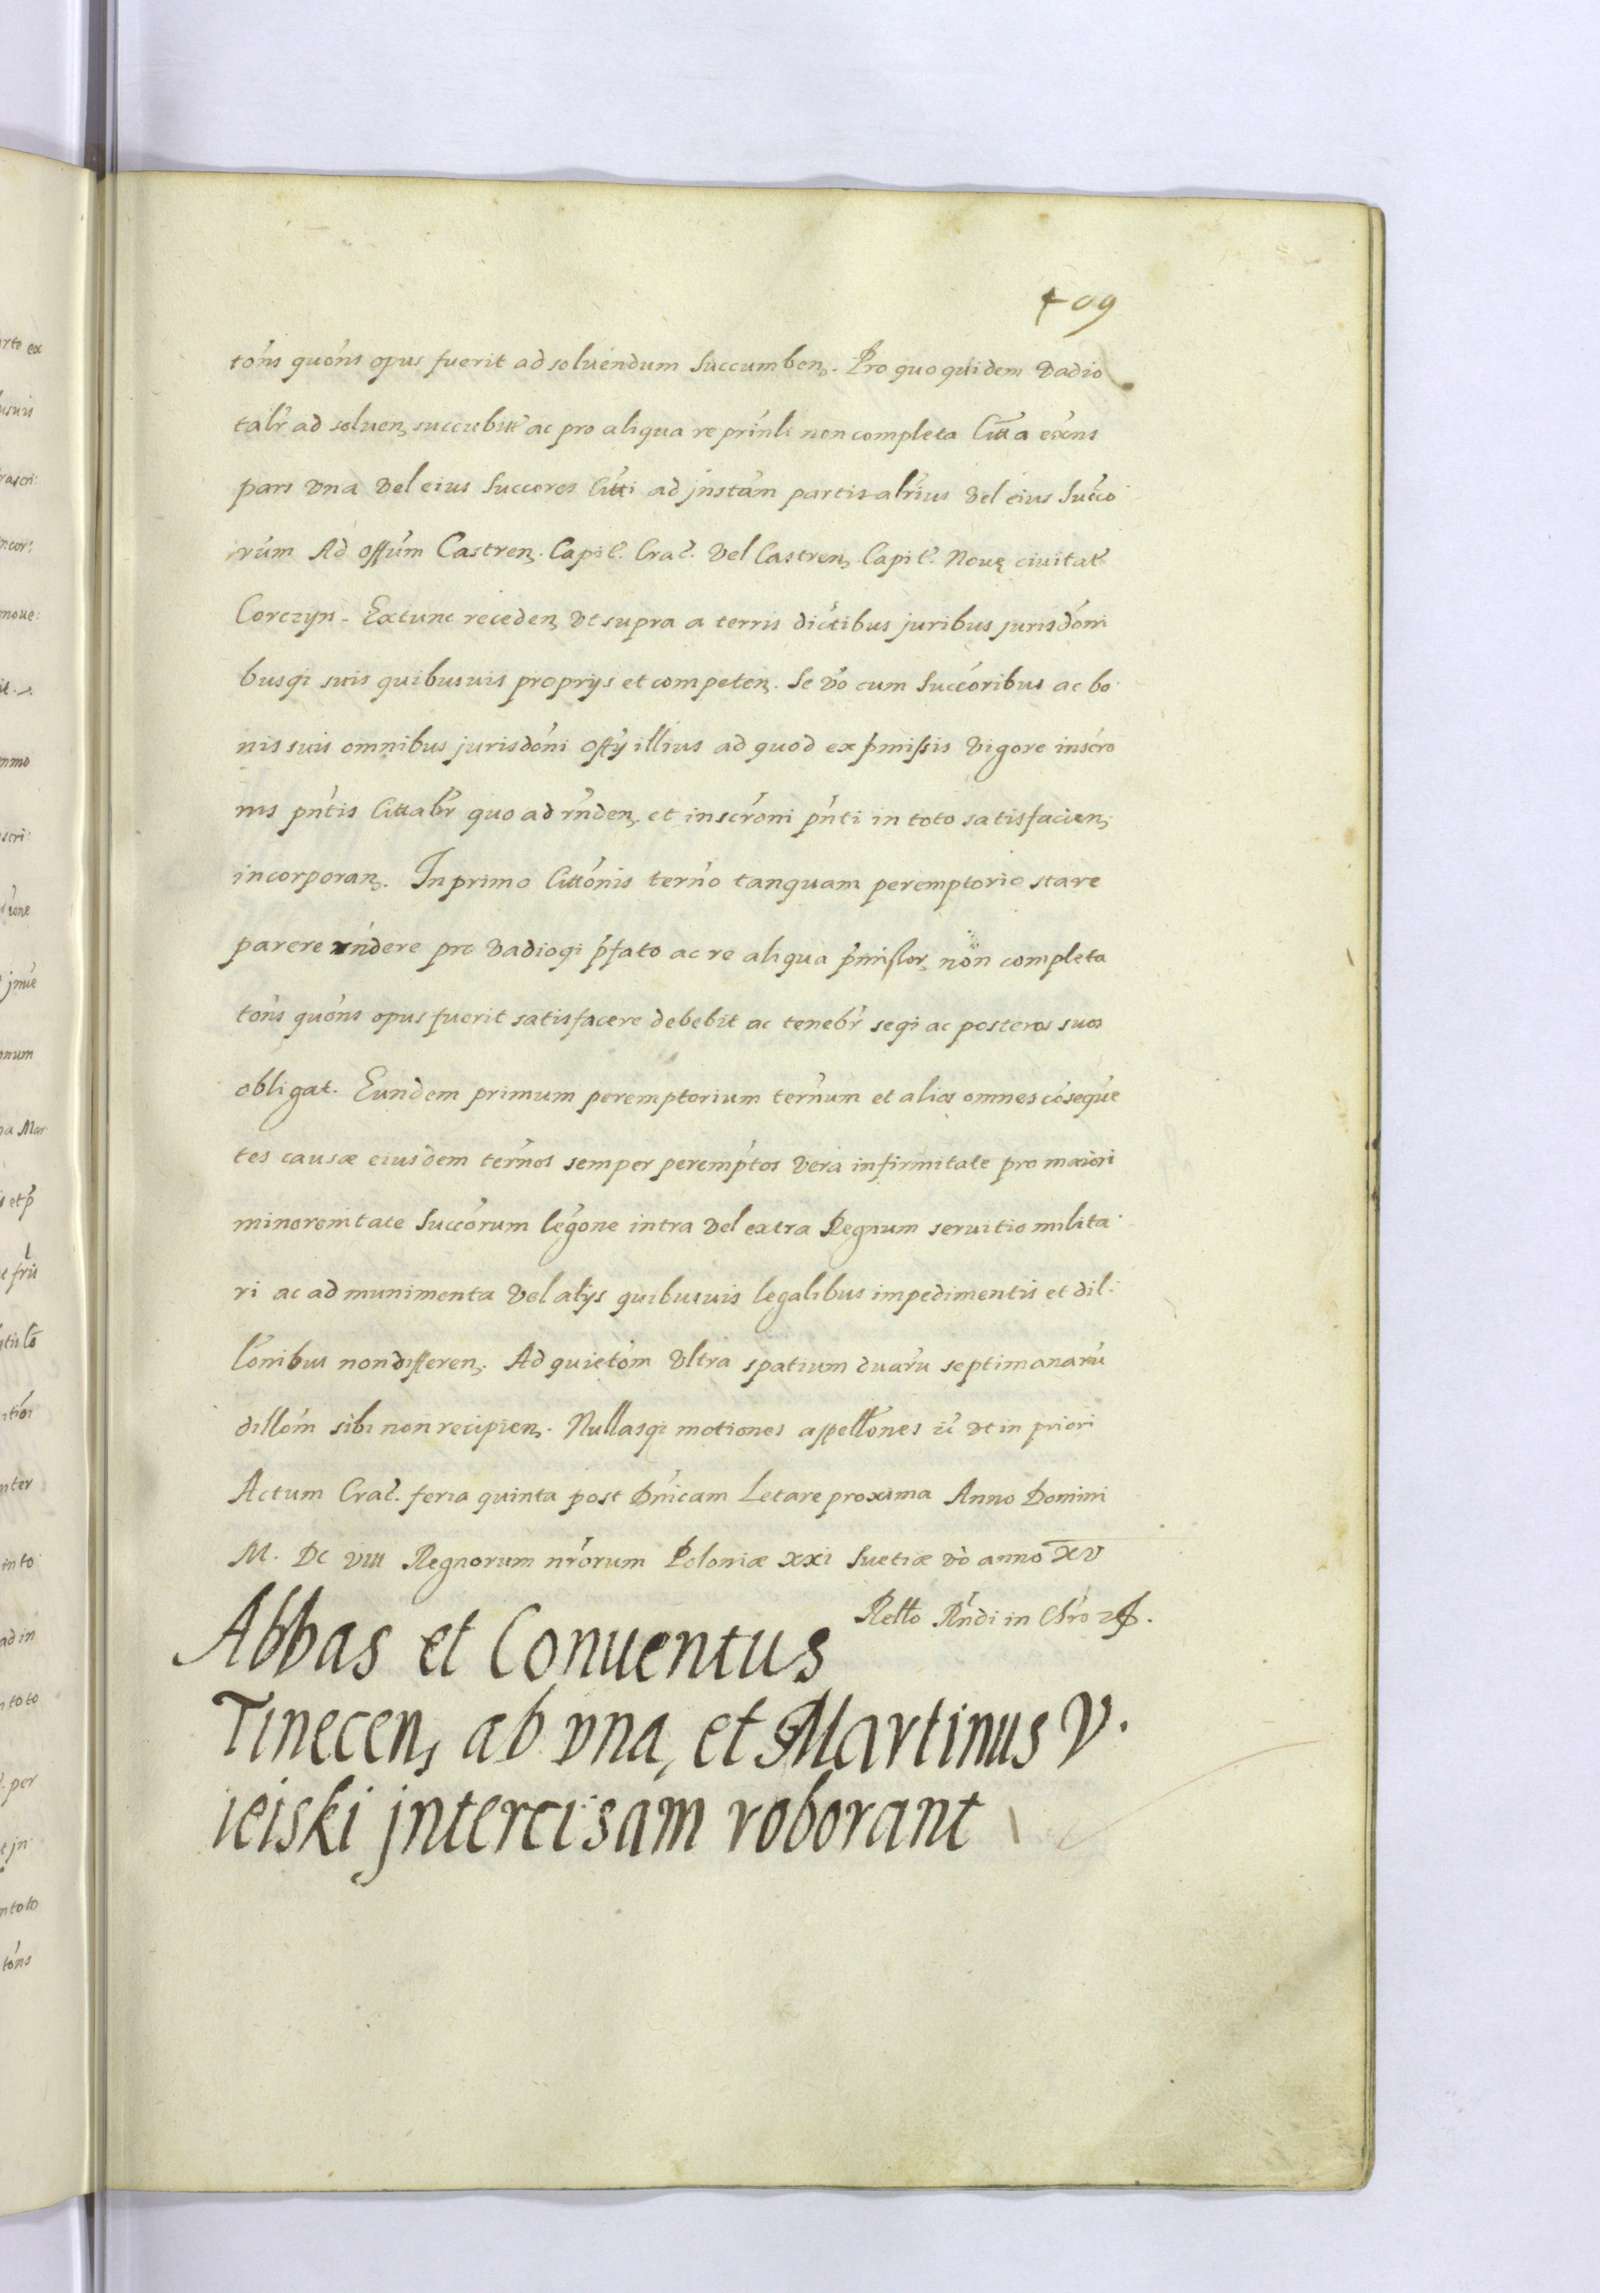 409
tóns quóns opus fuerit ad soluendum succumben. Pro quo quidem vadio
talr ad soluen, succubitt ac pro aliqua re prinli non completa Citta exns
pars vna vel eius Succores Citti ad jnstam partis alrius vel eius Succo
rum Ad offum Castren. Capit. Crac. vel Castren, Capit. Nouę ciuitat
Corczyn. Extunc receden, vt supra a terris dictibus juribus jurisdóni
busqi suis quibusuis proprys et competen. Se vo cum Succoribus ac bo
nis suis omnibus jurisdóni offy illius ad quod ex pmissis vigore inscro
nis pntis Cittabr quo ad rnden, et inscroni pnti in toto satisfacien,
incorporan. In primo Cittónis terno tanquam peremptorio stare
parere rndere pro vadioqi pfato ac re aliqua pmissor, nón completa
tóns quóns opus fuerit satisfacere debebit ac tenebr seqi ac posteros suos
obligat. Eundem primum peremptorium ternum et alios omnes cóseque
tes causæ eiusdem ternos semper peremptos vera infirmitate pro maiori
minorenitate Succorum legone intra vel extra Regnum seruitio milita
ri ac ad munimenta vel alys quibusuis legalibus impedimentis et dil
lonibus non differen. Ad quietóm vltra spatium duaru septimanaru
dillóm sibi non recipien. Nullasqi motiones appellones zc vt in priori
Actum Crac. feria quinta post Dnicam Letare proxima Anno Domini
M. DC VIII Regnorum nrorum Poloniæ XXI Suetiæ vo anno XV
Relto Rndi in Chro
Abbas et Conuentus
Tinecen, ab vna, et Martinus V.
ieiski jntercisam roborant